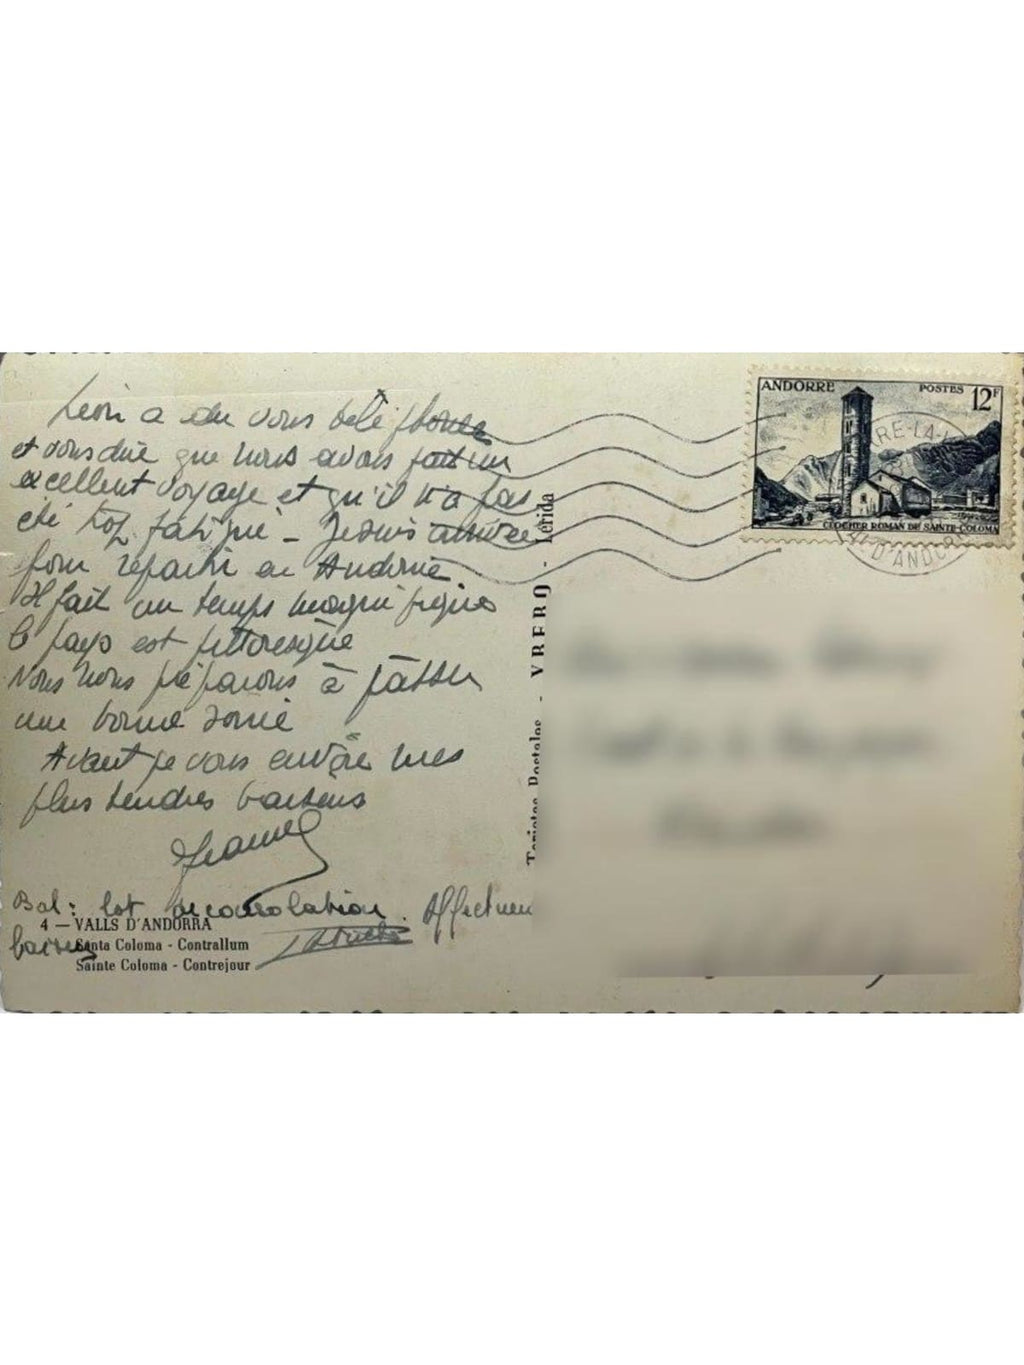 Léon a du vous téléphoner
et vous dire que nous avons fait un
excellent voyage et qu'il n'a pas
été trop fatigué - Je suis arrivée
pour repartir en Andorre
Il fait un temps magnifique
le pays est pittoresque
Nous nous préparons à passer
une bonne soirée
Avant je vous envoie mes
plus tendres baisers
Jeanne
Bal: lot de consolation. Affectueux
baisers
4 — VALLS D'ANDORRA
Santa Coloma - Contrallum
Sainte Coloma - Contrejour
Tarjetas Postales - VRERO - Lérida
ANDORRE POSTES 12F
CLOCHER ROMAN DE SAINTE-COLOMA
RE-LA-V
VAL D'ANDORRE